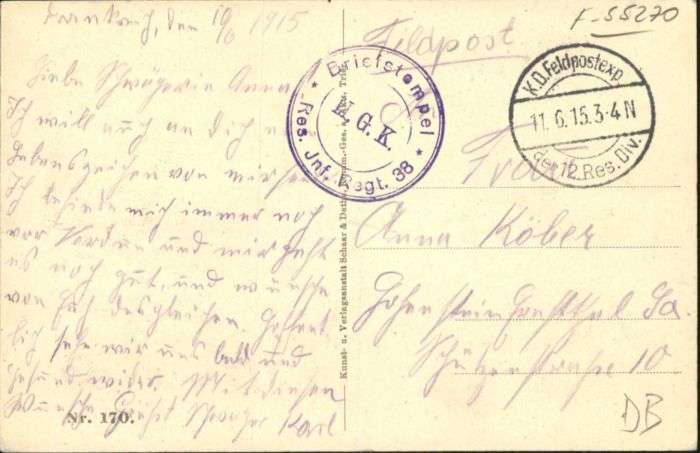 F-55270
Frankreich, den 10/6 1915
Liebe Schwägerin Anna!
Ich will auch an Dich ein
Lebenszeichen von mir
Ich befinde mich immer noch
vor Verdun und mir geht
es noch gut, und wünsche
von Euch desgleichen. Hoffent
lich sehe wir uns bald und
gesund wider. Mit diesen
Wünsche Grüßt Schwager Karl
Nr. 170.
Kunst- u. Verlagsanstalt Schaar & Dathe, Komm.-Ges. a. Akt., Trier.
Briefstempel
N.G.K.
* Res. Jnf. Regt. 38 *
Feldpost
K.D. Feldpostexp.
11.6.15.3-4N
der 12. Res. Div.
Frau
Anna Köber
Hohenstein Ernstthal Sa.
Schützenstraße 10
DB